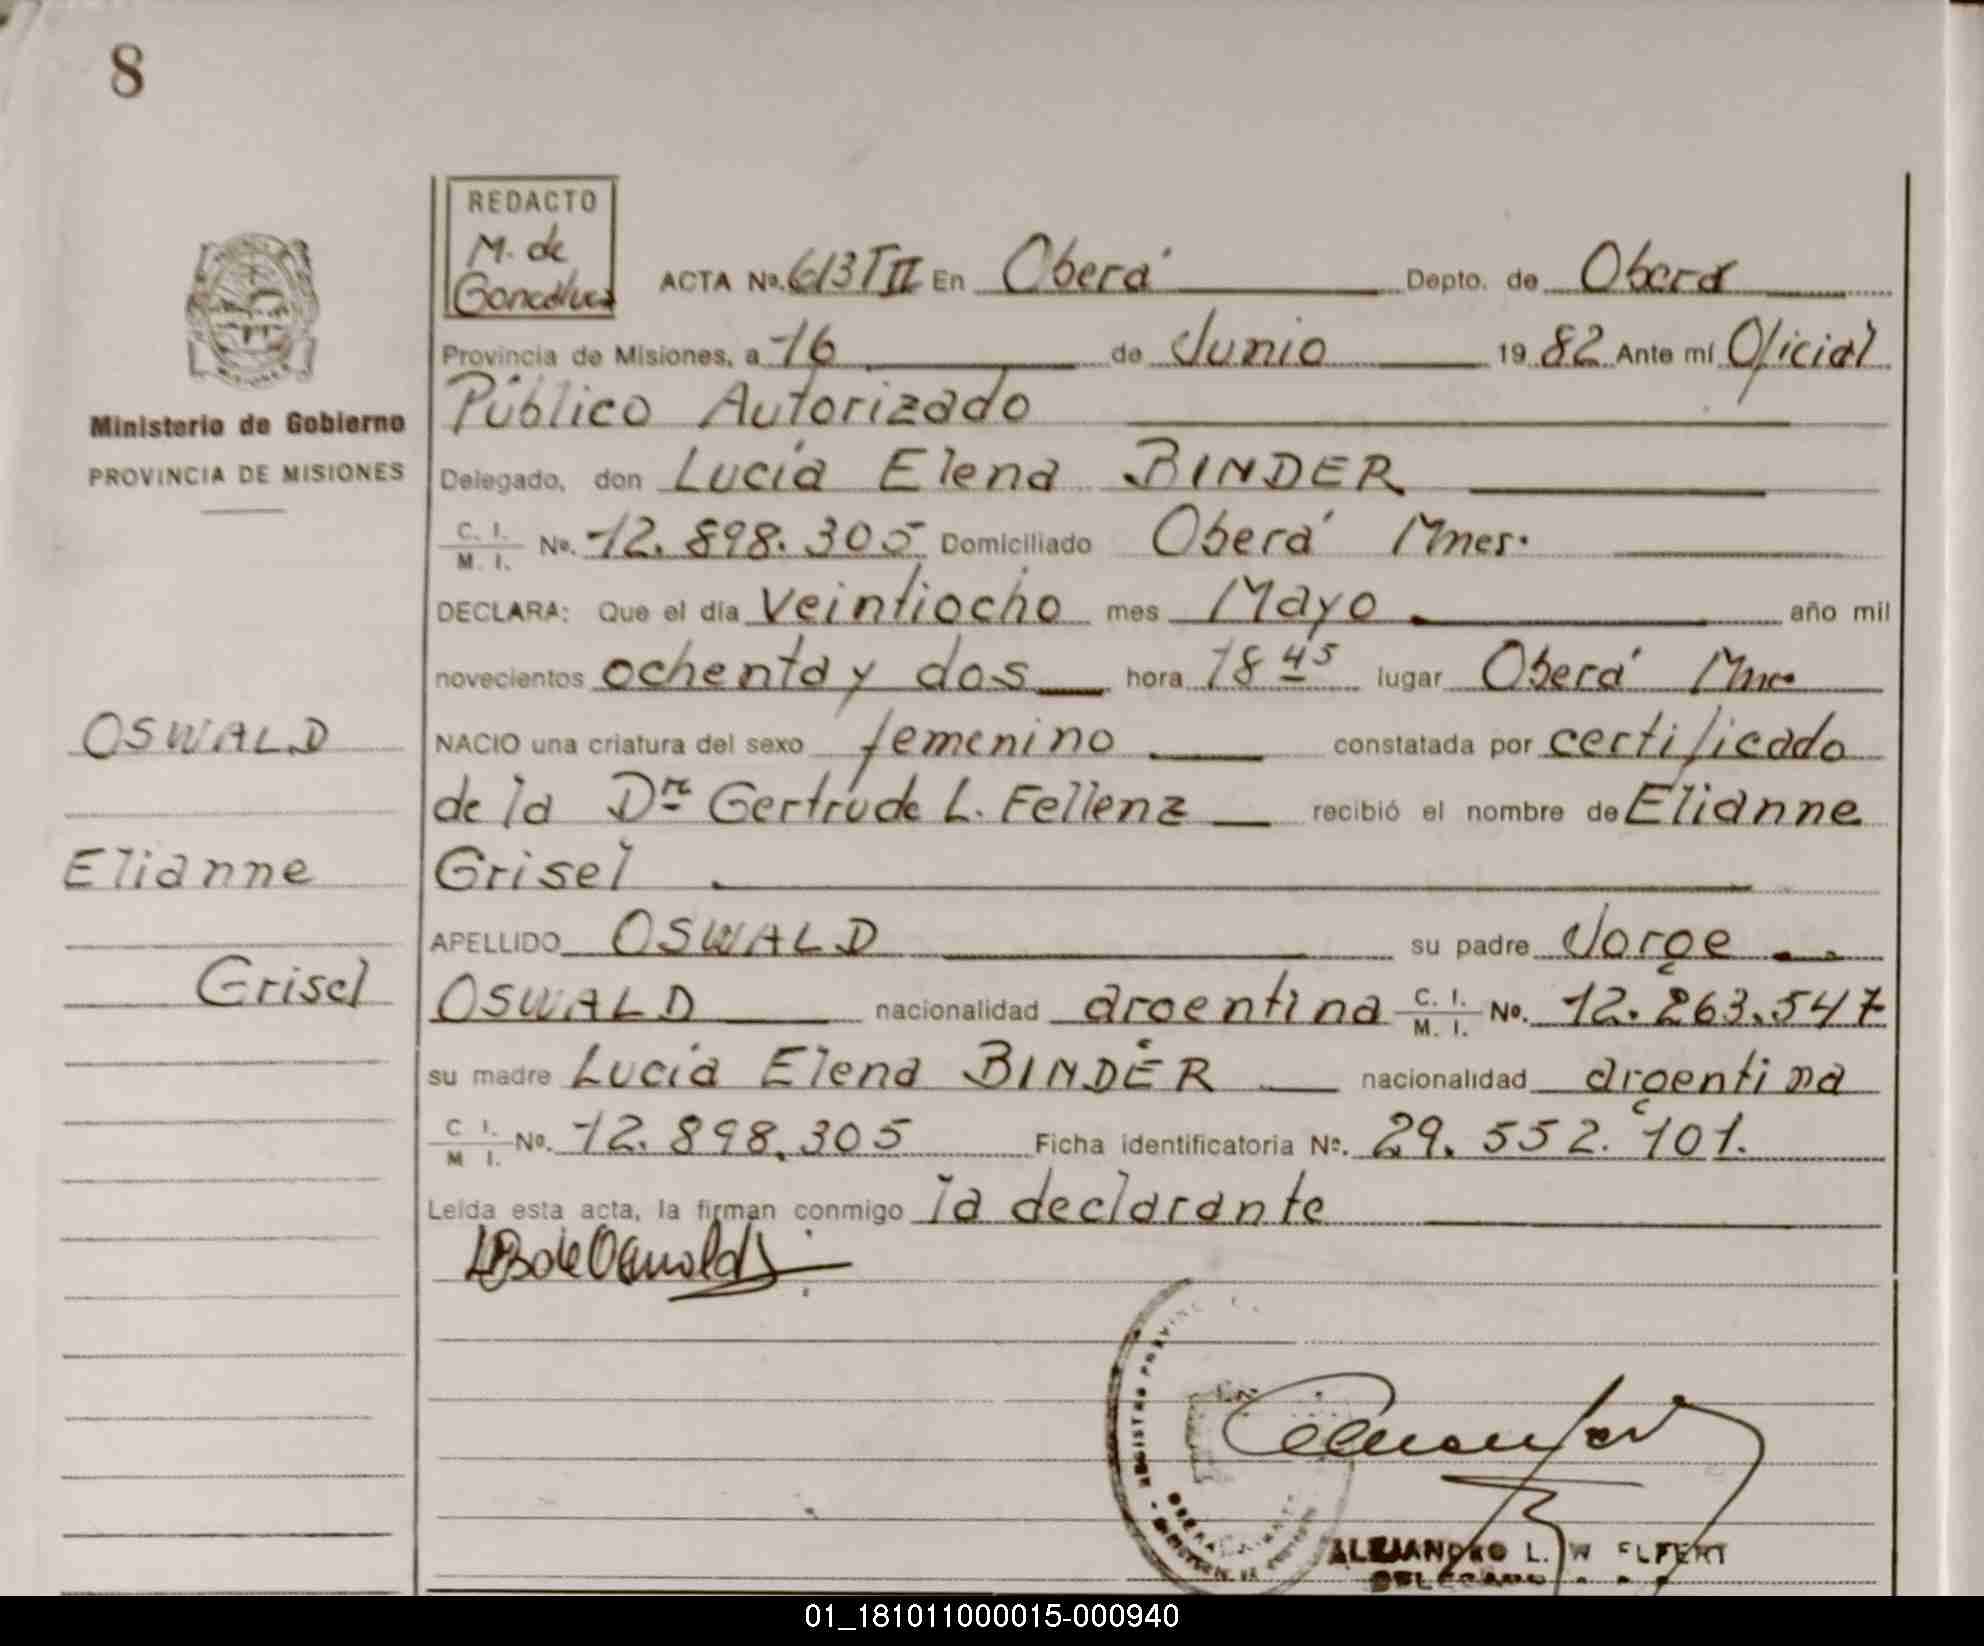 8
REDACTO
M. de
Goncalvez
ACTA No. 613 T II En Oberá Depto. de Oberá
Provincia de Misiones, a 16 de Junio 1982 Ante mí Oficial
Público Autorizado
Ministerio de Gobierno
PROVINCIA DE MISIONES
Delegado, don Lucía Elena BINDER
C. I.
M. I. No. 12.898.305 Domiciliado Oberá Mnes.
DECLARA: Que el día Veintiocho mes Mayo año mil
novecientos ochenta y dos hora 18 45 lugar Oberá Mnes
OSWALD
NACIO una criatura del sexo femenino constatada por certificado
de la Dra Gertrude L. Fellenz recibió el nombre de Elianne
Elianne
Grisel
APELLIDO OSWALD su padre Jorge
Grisel
OSWALD nacionalidad argentina C. I. M. I. No. 12.263.547
su madre Lucía Elena BINDER nacionalidad argentina
C I. M I. No. 12.898.305 Ficha identificatoria No. 29.552.101.
Leída esta acta, la firman conmigo la declarante
LB de Oswald
REGISTRO
ALEJANDRO L. W
DELEGADO
01_181011000015-000940